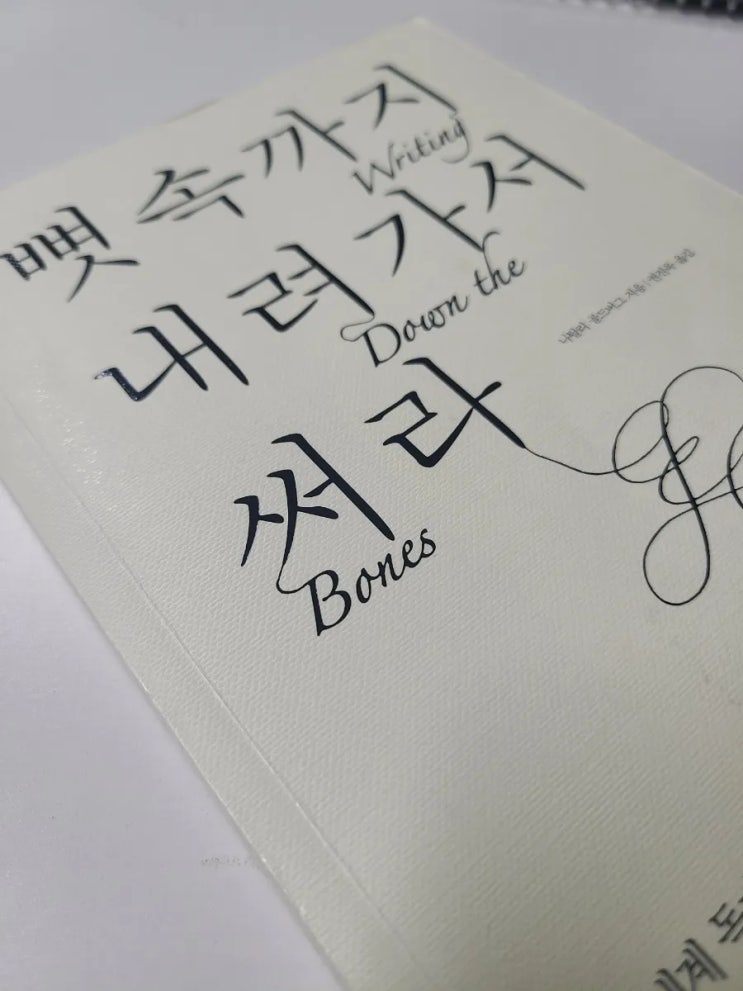 뼛속까지
Writing
내려가서
Down the
써라
Bones
나탈리 골드버그 지음 | 권진욱 옮김
세계 독